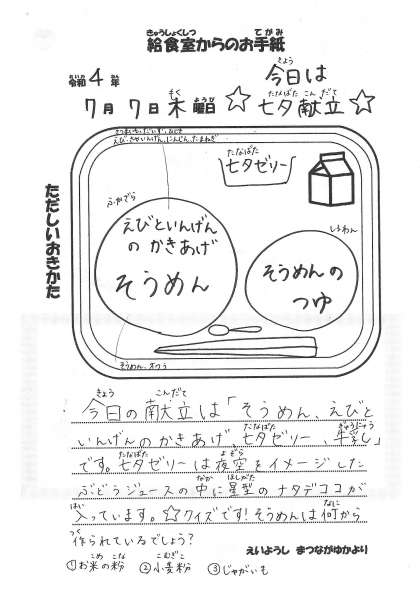 きゅうしょくしつ　てがみ
給食室からのお手紙
れいわ　ねん　きょう
令和4年　今日は
もく　ようび　たなばた こんだて
7月7日木曜日　☆七夕献立☆
えび、さやいんげん、にんじん、たまねぎ
たなばた
七夕ゼリー
ただしいおきかた
ふかざら
えびといんげん
の かきあげ
そうめん
しるわん
そうめんの
つゆ
そうめん、オクラ
きょう　こんだて
今日の献立は「そうめん、えびと
たなばた　ぎゅうにゅう
いんげんのかきあげ、七夕ゼリー、牛乳」
たなばた　よぞら
です。七夕ゼリーは夜空をイメージした
なか　ほしがた
ぶどうジュースの中に星型のナタデココが
はい　なに
入っています。☆クイズです!そうめんは何から
つく
作られているでしょう?
えいようし　まつながゆかより
こめ　こな　こむぎこ
①お米の粉　②小麦粉　③じゃがいも